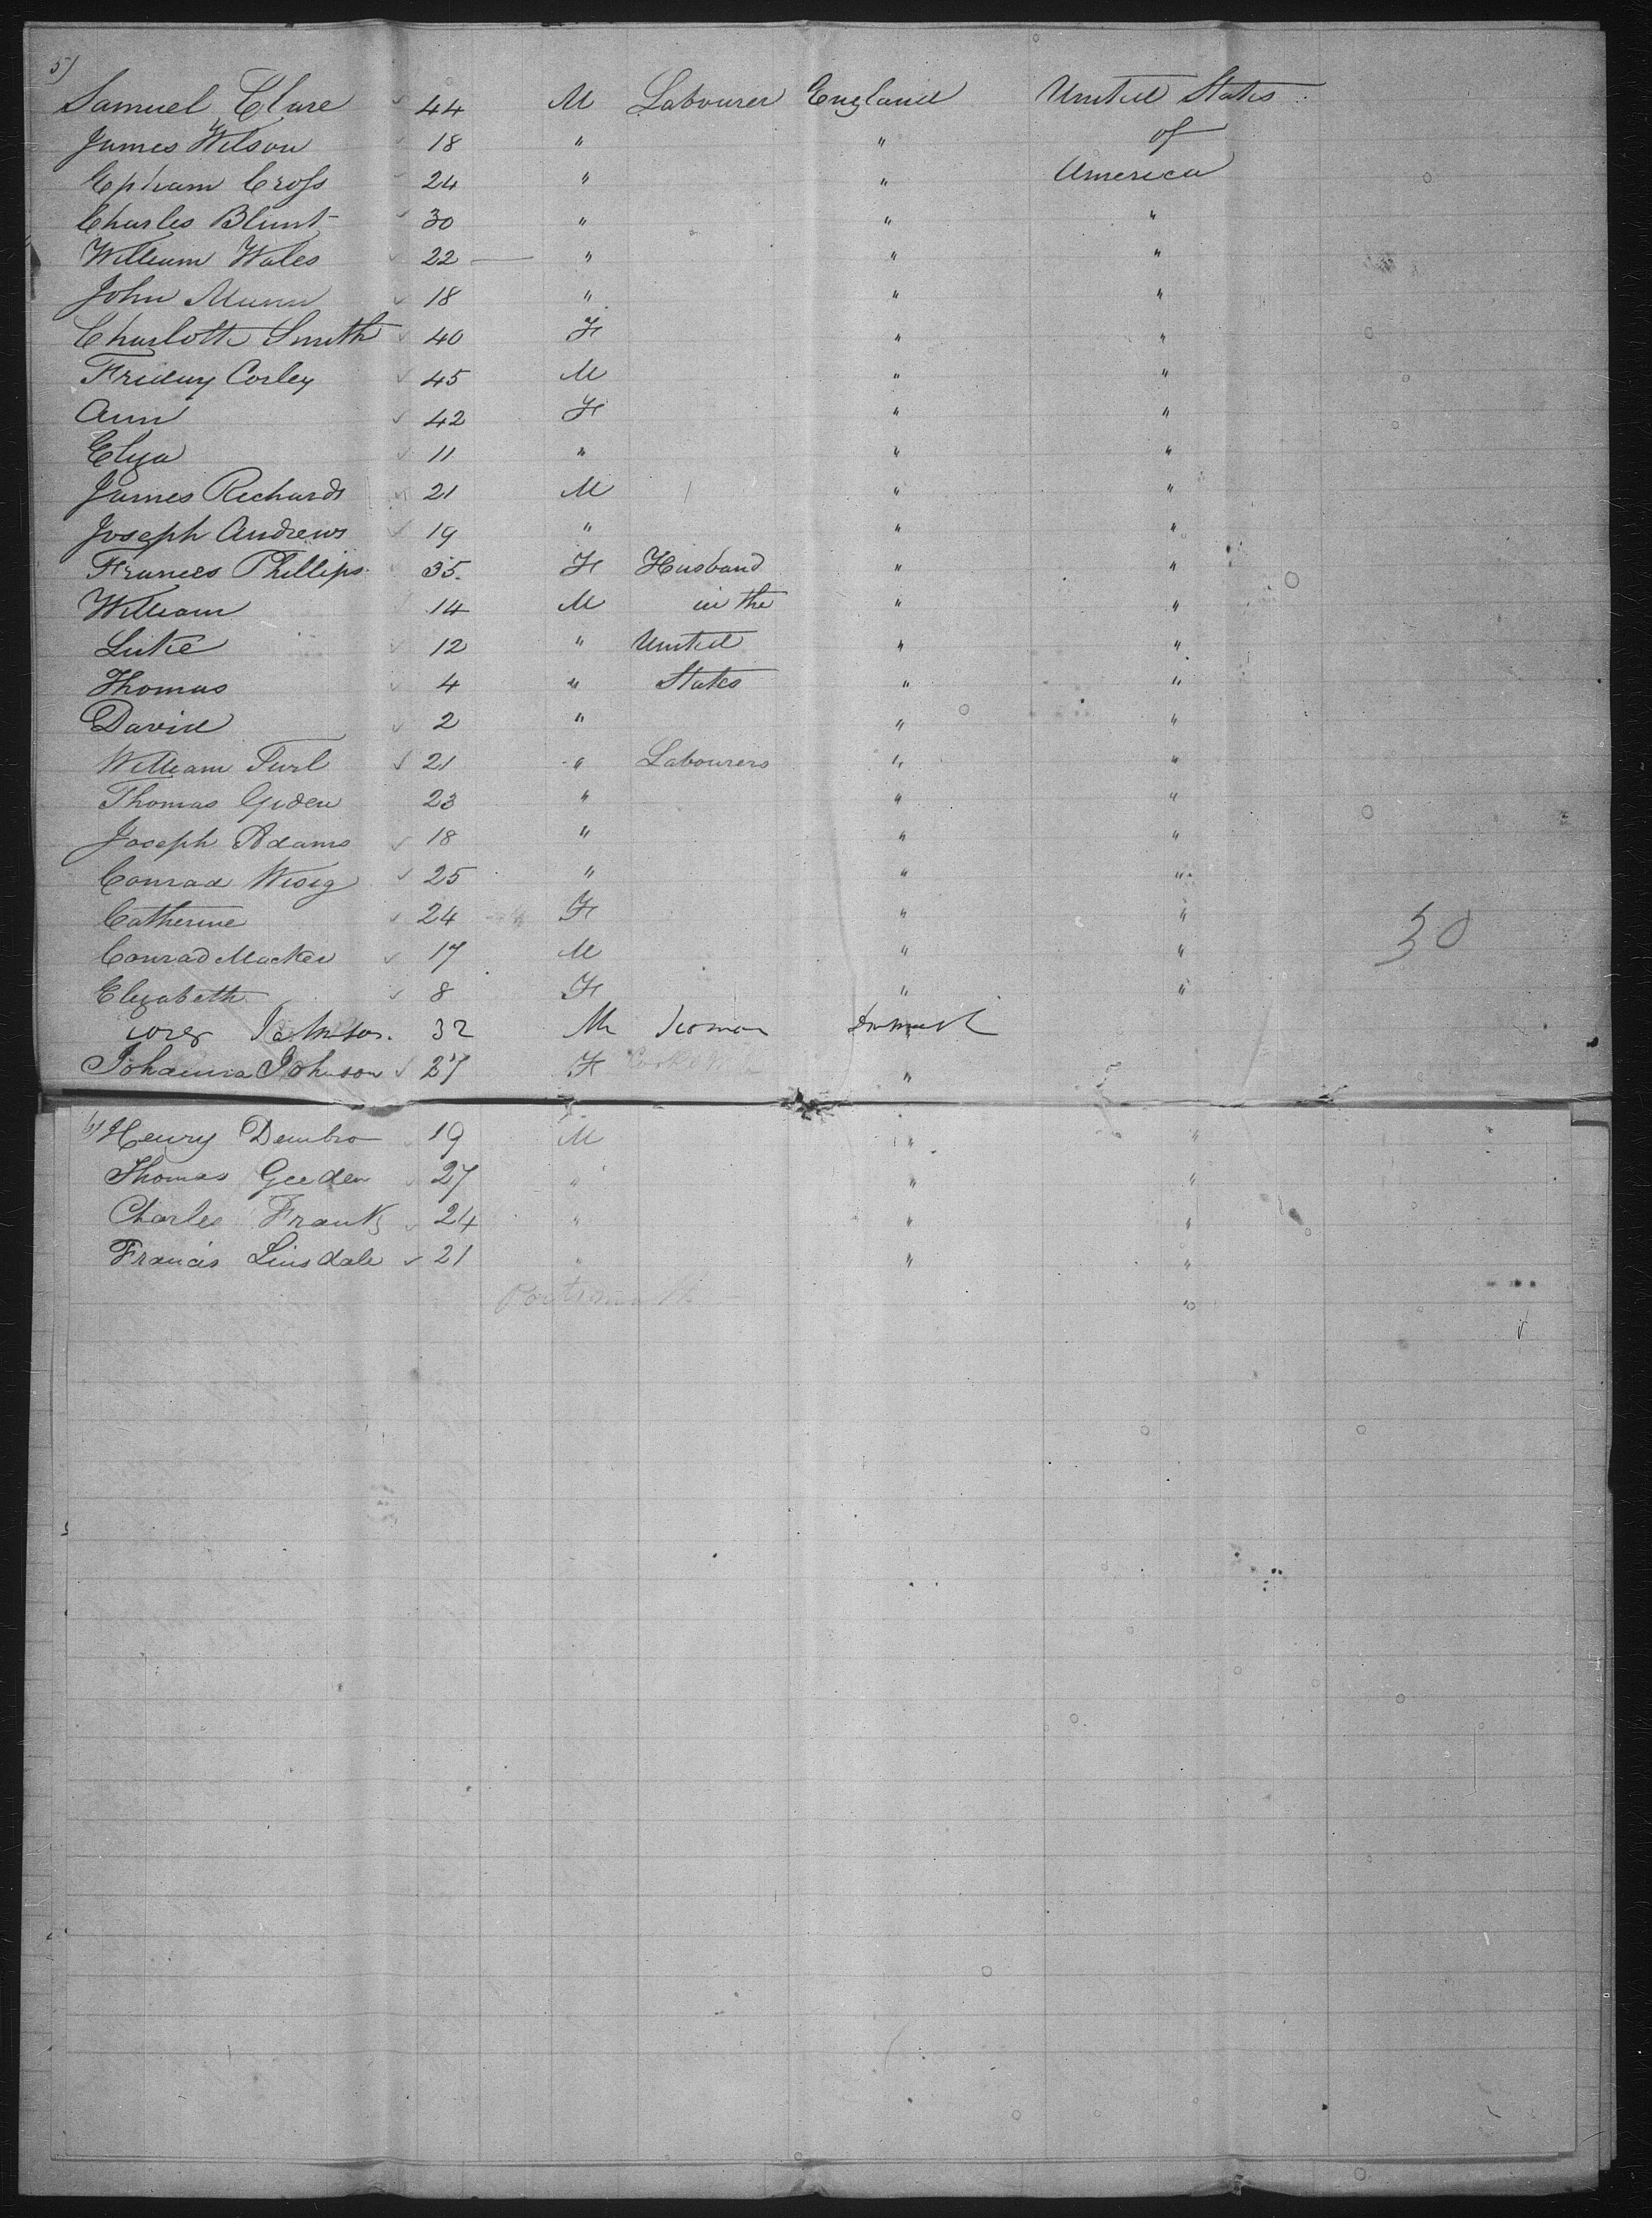 5)
Samuel Clare 44 M Labourer England United States
James Wilson 18 " " of
Ephram Cross 24 " " America
Charles Blunt 30 " " "
William Wales 22 — " " "
John Munn 18 " " "
Charlotte Smith 40 F " "
Friday Corley 45 M " "
Ann 42 F " "
Eliza 11 " " "
James Richards 21 M " "
Joseph Andrews 19 " " "
Frances Phillips 35. F Husband " "
William 14 M in the " "
Luke 12 " United " "
Thomas 4 " States " "
David 2 " " "
William Turl 21 " Labourers " "
Thomas Giden 23 " " "
Joseph Adams 18 " " "
Conrad Wisig 25 " " "
Catherine 24 F " "
30
Conrad 17 M " "
Elizabeth 8 F " "
32 M
Johanna Johnson 27 F "
6) Henry Dembro 19 M " "
Thomas Geeden 27 " " "
Charles Frank 24 " " "
Francis Linsdale 21 " " "
"